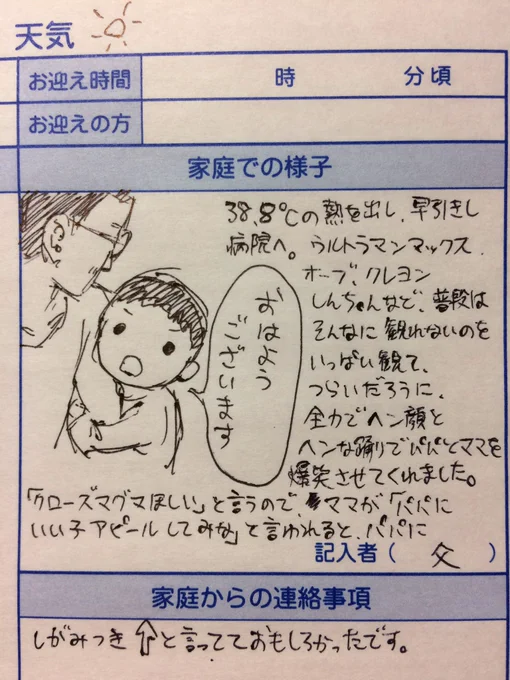 天気
お迎え時間 時 分頃
お迎えの方
家庭での様子
38.8℃の熱を出し、早引きし
病院へ。ウルトラマンマックス、
オーブ、クレヨン
しんちゃんなど、普段は
そんなに観れないのを
いっぱい観て、
つらいだろうに、
全力でヘン顔と
ヘンな踊りでパパとママを
爆笑させてくれました。
おはよう
ございます
「クローズマグマほしい」と言うので、ママが「パパに
いい子アピールしてみな」と言われると、パパに
記入者（ 父 ）
家庭からの連絡事項
しがみつき⇧と言ってておもしろかったです。